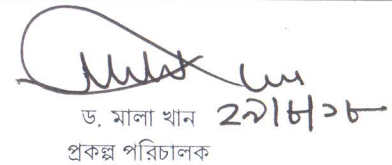 ড. মালা খান ২৯|৮|১৮
প্রকল্প পরিচালক